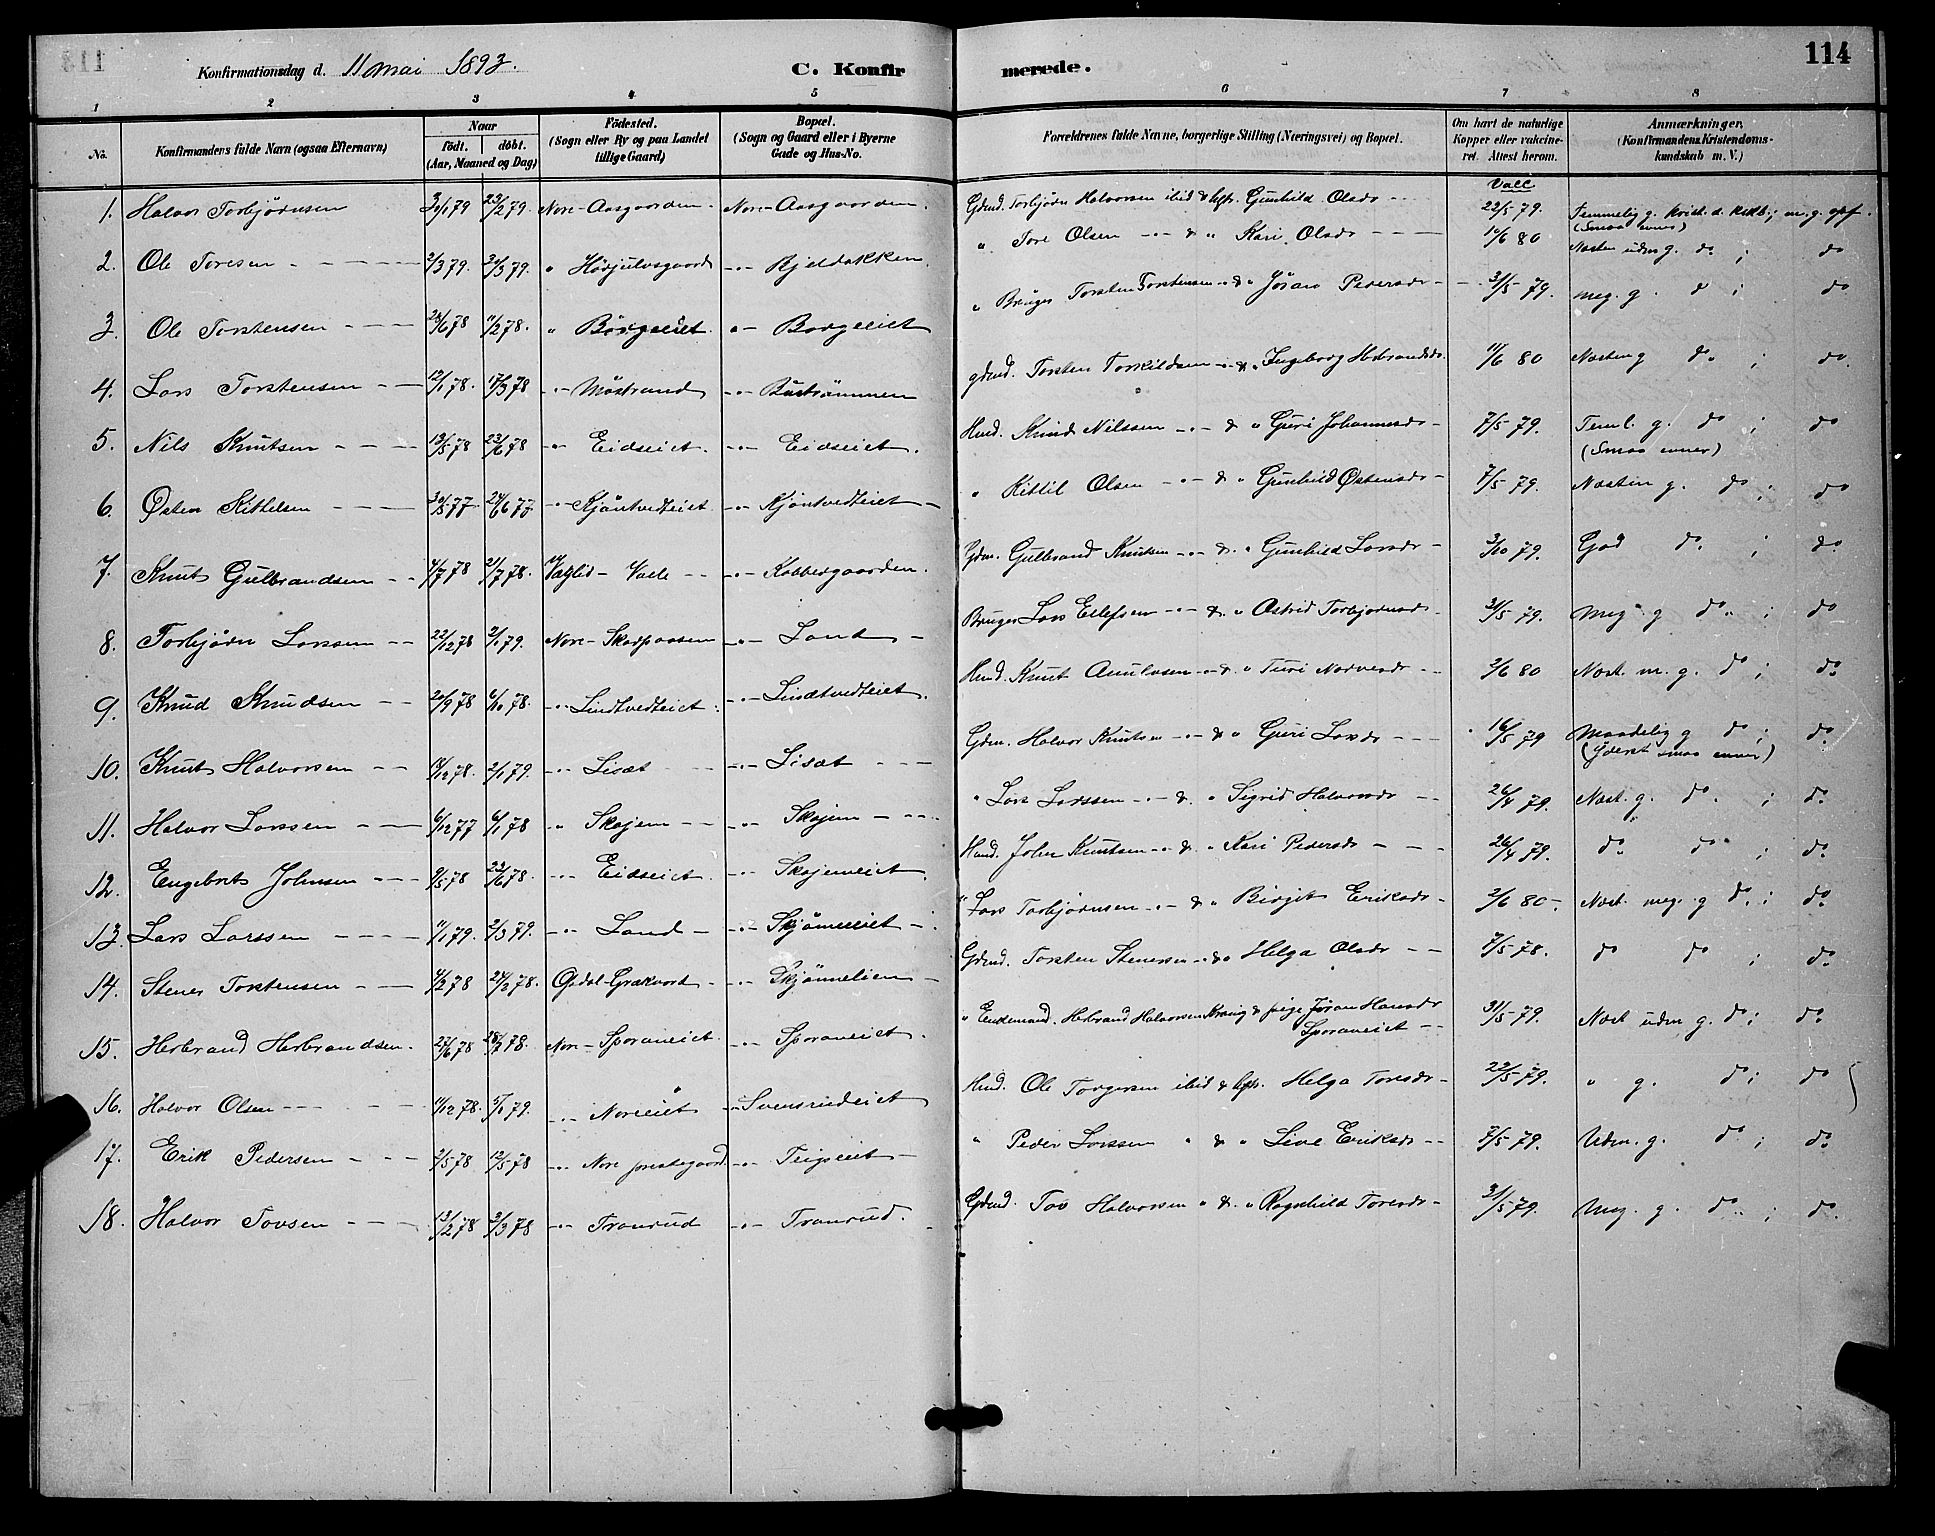 114
Konfirmationsdag d. 11 mai 1893. C. Konfirmerede.
1 2 3 4 5 6 7 8
No. Konfirmandens fulde Navn (ogsaa Efternavn) Naar födt. döbt. (Aar, Maaned og Dag) Födested. (Sogn eller By og paa Landet tillige Gaard) Bopæl. (Sogn og Gaard eller i Byerne Gade og Hus-No. Forældrenes fulde Navne, borgerlige Stilling (Næringsvei) og Bopæl. Om havt de naturlige Kopper eller vakcineret. Attest herom. Anmærkninger, (Konfirmandens Kristendomskundskab m. V.)
Vacc
1. Halvor Torbjørnsen 3/1 79 23/2 79. Nore - Aasgaarden. Nore - Aasgaarden. Gdmd. Torbjørn Halvorsen ibid & hst. Gunhild Olsdr 22/5 79. Temmelig g. krist. d. kdsk.; m. g. opf. (Smaa evner)
2. Ole Toresen 2/3 79. 30/3 79. " -"- Kjeldakken. " Tore Olsen -"- & " Kari Olsdr 10/6 80 Næsten udm g. do ; do
3. Ole Torstensen 1/2 78. " Börgeeiet -"- Borgeeiet " Bruger Torsten Torstensen -"- & " Jøran Pedersdr 31/5 79. meg. g. d ; do
4. Lars Torstensen 12/1 78. 17/3 78 -"- Möstrand -"- gdmd. Torsten Torkildsen -"- & " Ingeborg Herbrandsdr. 11/6 80 Næsten g do ; do.
5. Nils Knutsen 13/5 78 23/6 78 -"- Eidseiet. -"- Eidseiet. Hmd. Knud Nilssen -"- & " Guri Johannesdr 7/5 79. Teml. g. do ; do (Smaa evner)
6. Østen Kittelsen 30/5 77 24/6 77 -"- Kjöntvedteiet -"- Kjöntvedteiet " Kittil Olsen -"- & " Gunhild Østensdr 7/5 79. Næsten g. do ; do
7. Knut Gulbrandsen 4/7 78 21/7 78. -"- Kobbergaarden. Gdm. Gulbrand Knutsen -"- & " Gunhild Larsdr 3/10 79. God do. ; do.
8. Torbjörn Larssen 22/12 78 2/1 79. Nore - Skarpaasen -"- Land Bruger Lars Ellefsen -"- & " Astrid Torbjørnsdr 31/5 79. Meg. g do. ; do
9. Knud Knudsen 20/9 78 6/10 78. -"- Lindtvedteiet. -"- Hmd. Knut -"- & " Turi 2/6 80 Næst. m. g. do ; do.
10. Knut Halvorsen 2/1 79. -"- Lisæt -"- Lisæt Gdm. Halvor Knutsen -"- & " Guri Larsdr 16/5 79 Maadelig g do ; do. (Yderst smaa evner)
11. Halvor Larssen 6/12 77 6/1 78 " Skajem -"- Skajem " Lars Larssen -"- & " Sigrid Halvorsdr 26/4 79. Næst. g. do. ; do.
12. Engebret Johnsen 9/5 78 23/6 78. -"- Eidseiet. -"- Skajemeiet. Hmd. John Knutsen -"- & " Kari Pedersdr 26/4 79. do. do ; do.
13. Lars Larssen 1/1 79. 2/3 79. -"- Land -"- Skjönneeiet " Lars Torbjørnsen -"- & " Birgit Eriksdr 2/6 80 Næst. meg. g do. ; do.
14. Stener Torstensen 24/2 78. Opdal - -"- Skjönnelien Gdmd. Torsten Stenersen -"- & " Helga Olsdr 7/5 78. do do ; do.
15. Herbrand Herbrandsen. 22/6 78 28/7 78. Nore - Sporaneiet. -"- Sporaneiet " Enkemand. Herbrand Halvorsen & pige Jøran Hansdr Sporaneiet 31/5 79. Næst udm g. do ; do.
16. Halvor Olsen 11/12 78. 5/1 79. -"- Noreeiet -"- Svensrudeiet Hmd. Ole Torgersen ibid & hst. Helga Toresdr 22/5 79. " g. do ; do
17. Erik Pedersen 2/5 78 12/5 78 -"- Nore prestegaard -"- Teigseiet " Peder Larssen " & " Live Eriksdr 7/5 79. Udm. g. do ; do.
18. Halvor Tovsen 13/2 78 3/3 78 -"- Tranrud -"- Tranrud. Gdmd. Tov Halvorsen " & " Ragnhild Toresdr 31/5 79. Meg. g. do. ; do.